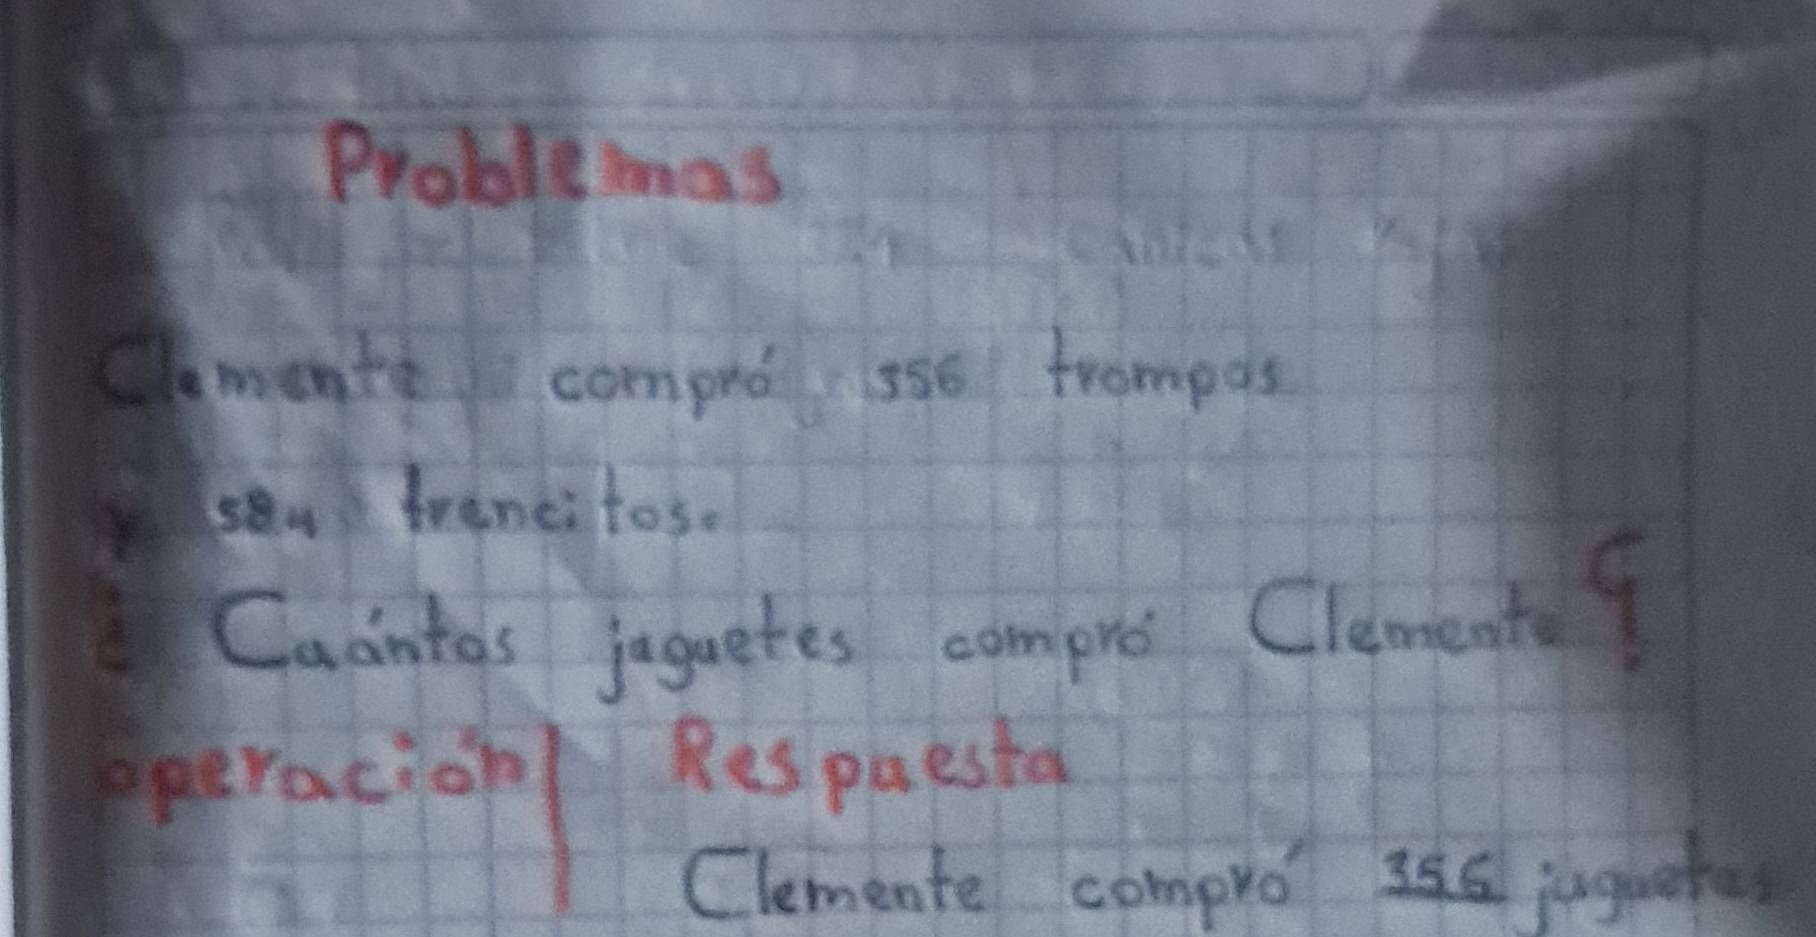 Problemas
Clemente compró 356 trompos
y 584 trencitos.
¿ Cuántos juguetes compró Clemente ?
operación | Respuesta
Clemente compró 356 juguetes